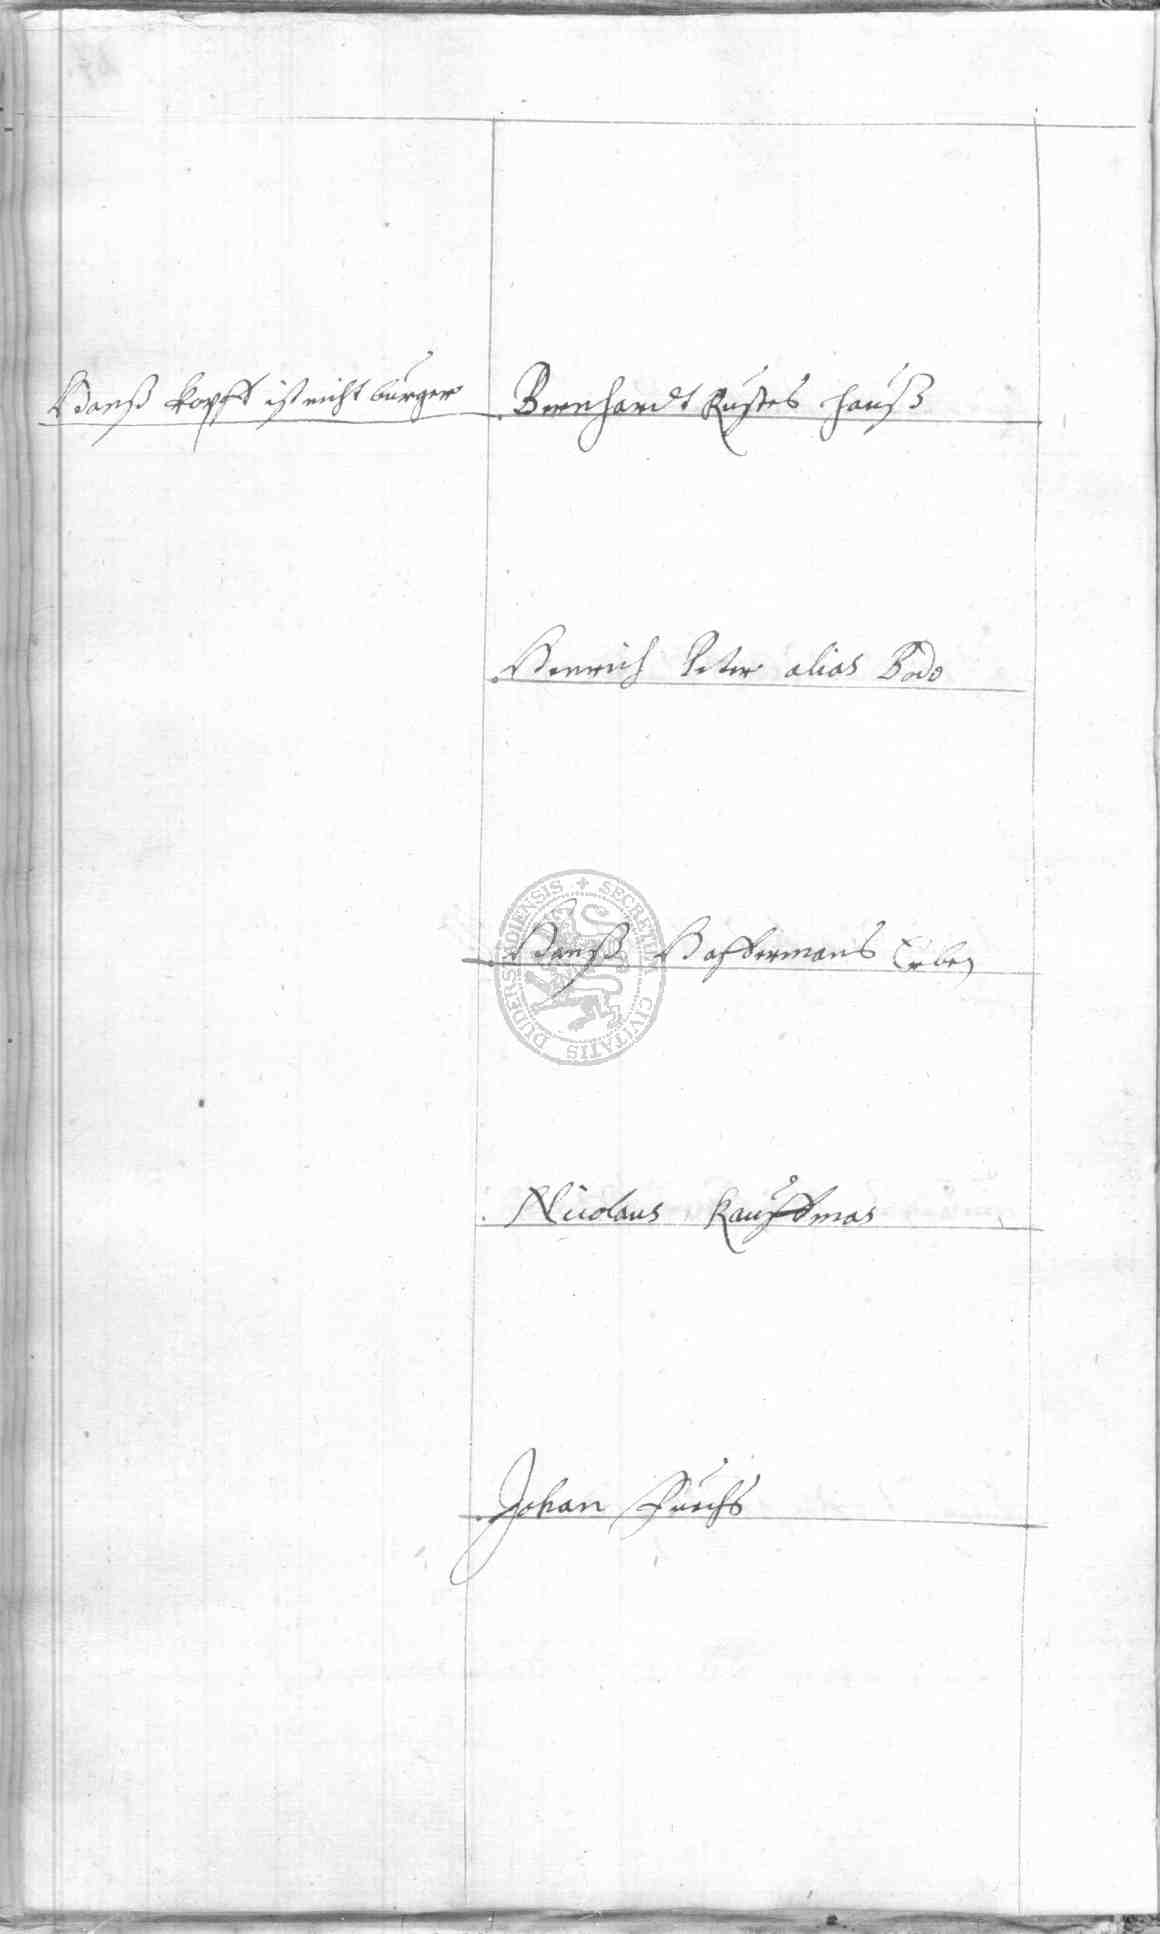 Hanß Kopfft ist nicht bürger
Bernhardt Rustes Hauß
Henrich Peter alias Bodo
Hanß Haffermans Erben
Nicolaus Kauffman
Johan Fuchs
SECRETUM CIVITATIS DUDERSTADIENSIS